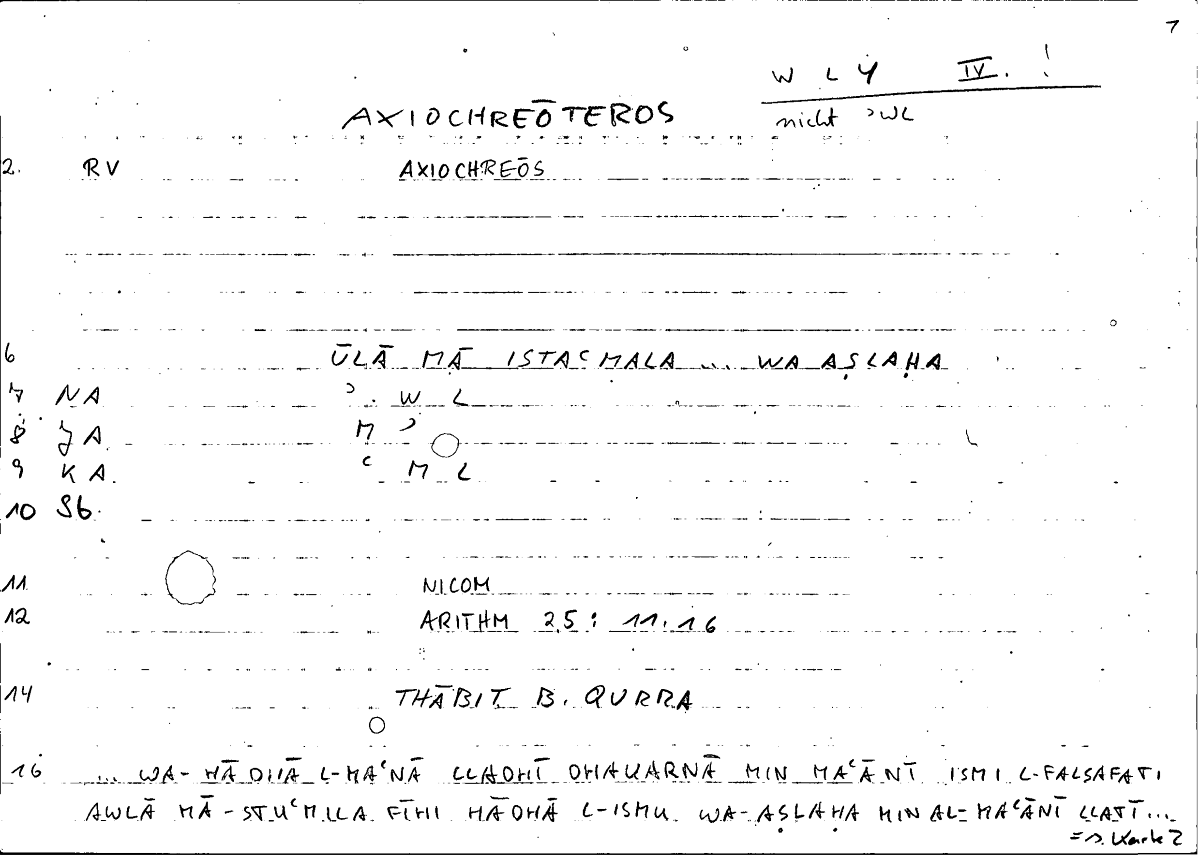 1
W L Y IV. !
AXIOCHREŌTEROS
nicht ʾWL
2. RV AXIOCHREŌS
6 ŪLĀ MĀ ISTAʿMALA ... WA AṢLAḤA
7 NA ʾ. W L
8 JA M ʾ
9 KA. ʿ M L
10 Sb.
11 NICOM
12 ARITHM 2,5 : 11.16
14 THĀBIT B. QURRA
16 ... WA-HĀDHĀ L-MAʿNĀ LLADHĪ DHAKARNĀ MIN MAʿĀNĪ ISMI L-FALSAFATI
AWLĀ MĀ-STUʿMILA FĪHI HĀDHĀ L-ISMU WA-AṢLAḤA MIN AL-MAʿĀNĪ LLATĪ...
= s. Karte 2